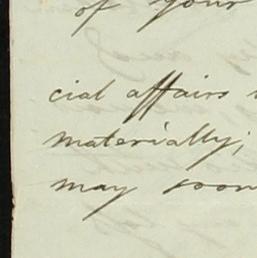 of your
cial affairs
materially;
may soon